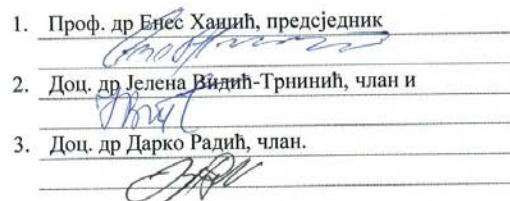 1. Проф. др Енес Хашић, предсједник
2. Доц. др Јелена Видић-Трнинић, члан и
3. Доц. др Дарко Радић, члан.